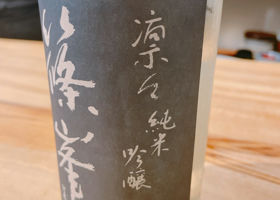 凛々 純米
吟醸
篠峯